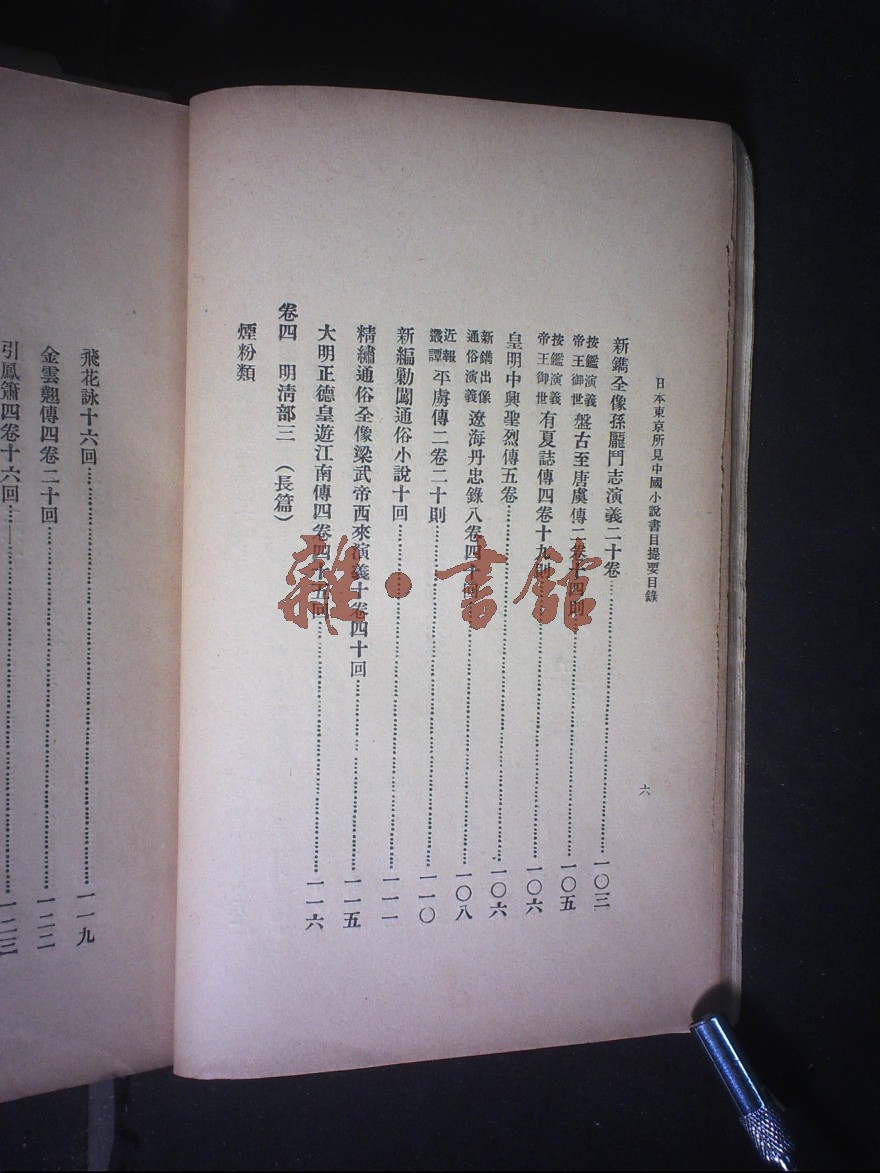 日本東京所見中國小說書目提要目錄
六
新鐫全像孫龐鬥志演義二十卷……一〇三
按鑑演義帝王御世盤古至唐虞傳二卷十四則……一〇五
按鑑演義帝王御世有夏誌傳四卷十九則……一〇六
皇明中興聖烈傳五卷……一〇六
新鐫出像通俗演義遼海丹忠錄八卷四十回……一〇八
近報叢譚平虜傳二卷二十則……一一〇
新編勦闖通俗小說十回……一一一
精繡通俗全像梁武帝西來演義十卷四十回……一一五
大明正德皇遊江南傳四卷四十五回……一一六
卷四 明清部三（長篇）
煙粉類
飛花詠十六回……一一九
金雲翹傳四卷二十回……一二二
引鳳簫四卷十六回……一二三
雜·書館